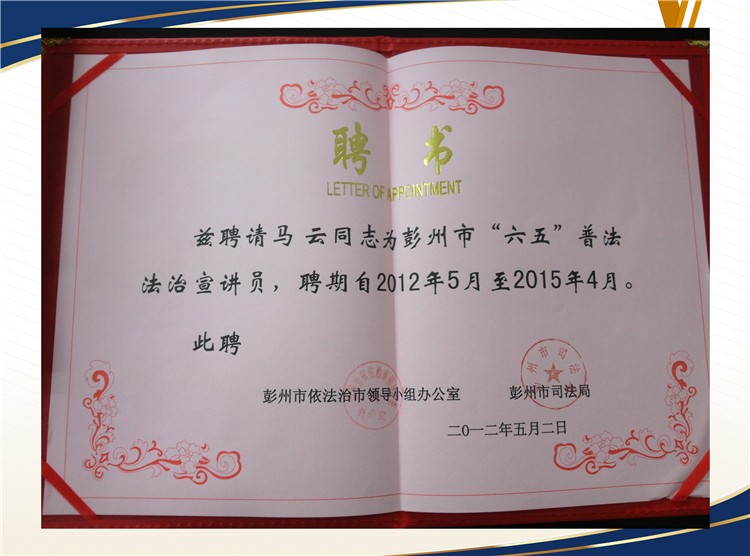 聘书
LETTER OF APPOINTMENT
兹聘请马云同志为彭州市“六五”普法
法治宣讲员，聘期自2012年5月至2015年4月。
此聘
彭州市依法治市领导小组办公室
彭州市司法局
二〇一二年五月二日